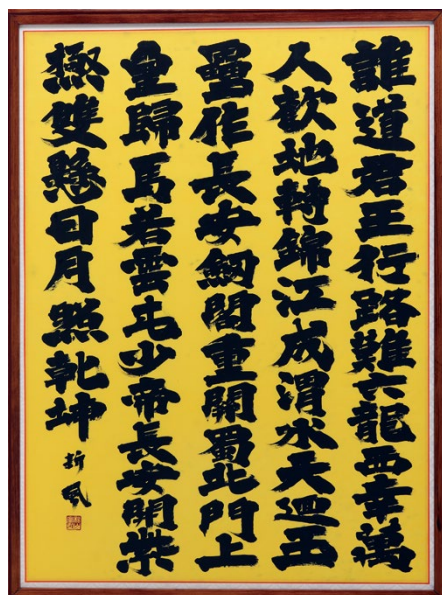 誰道君王行路難六龍西幸萬
人歡地轉錦江成渭水天迴玉
壘作長安劒閣重關蜀北門上
皇歸馬若雲屯少帝長安開紫
極雙懸日月照乾坤